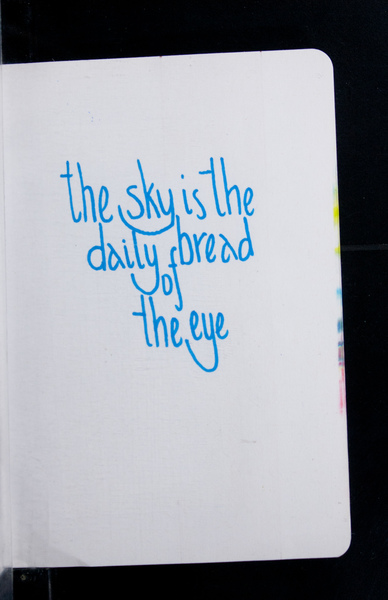 the sky is the
daily bread
of
the eye